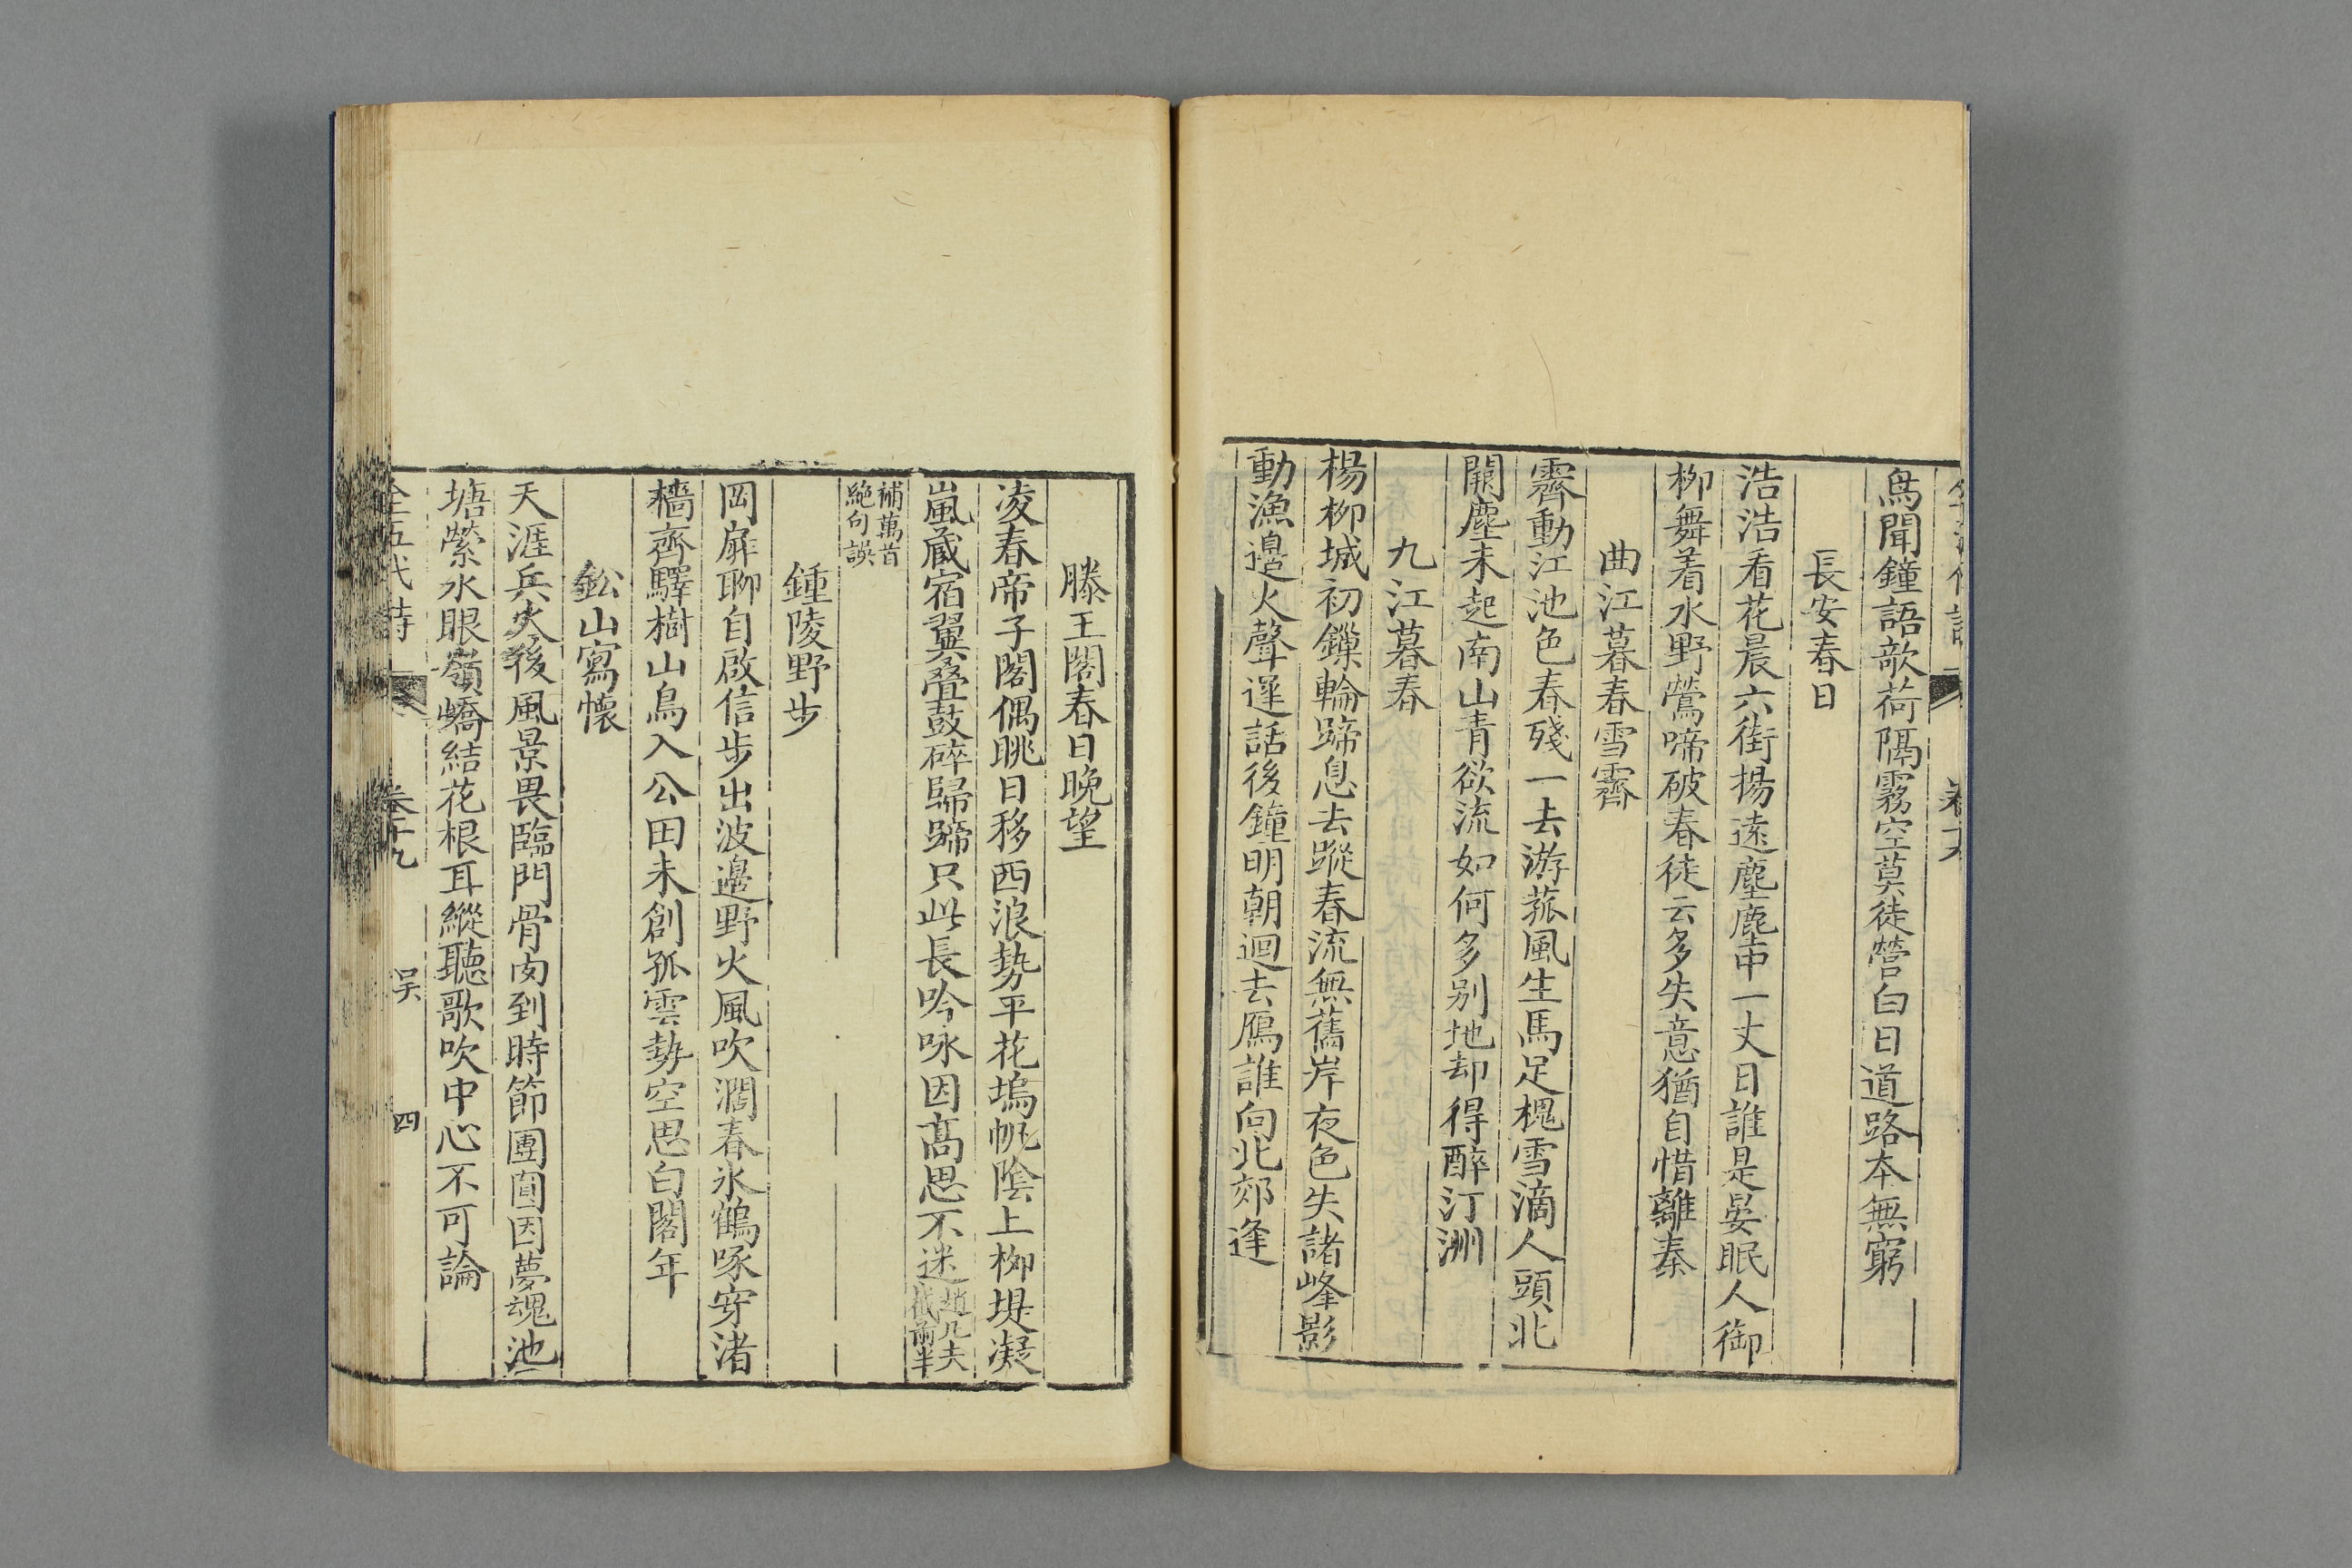 鳥聞鐘語歌荷隔霧空莫徒營白日道路本無窮
長安春日
浩浩看花晨六街揚遠塵塵中一丈日誰是晏眠人御
柳舞着水野鶯啼破春徒云多失意猶自惜離秦
曲江暮春雪霽
霽動江池色春殘一去游菰風生馬足槐雪滴人頭北
闕塵未起南山青欲流如何多别地却得醉汀洲
九江暮春
楊柳城初鏁輪蹄息去蹤春流無舊岸夜色失諸峰影
動漁邉火聲遲話後鐘明朝迴去鴈誰向北郊逢
滕王閣春日晚望
凌春帝子閣偶眺日移西浪勢平花塢帆隂上栁堤凝
嵐藏宿翼疊鼓碎歸蹄只此長吟咏因髙思不迷趙凡夫
截前半
補萬首
絶句誤
鍾陵野步
岡扉聊自啟信步出波邉野火風吹濶春氷鶴啄穿渚
檣齊驛樹山鳥入公田未創孤雲勢空思白閣年
鈆山寫懷
天涯兵火後風景畏臨門骨肉到時節團圓因夢魂池
塘縈水眼嶺嶠結花根耳縱聽歌吹中心不可論
全五代詩
卷十九
吴
四